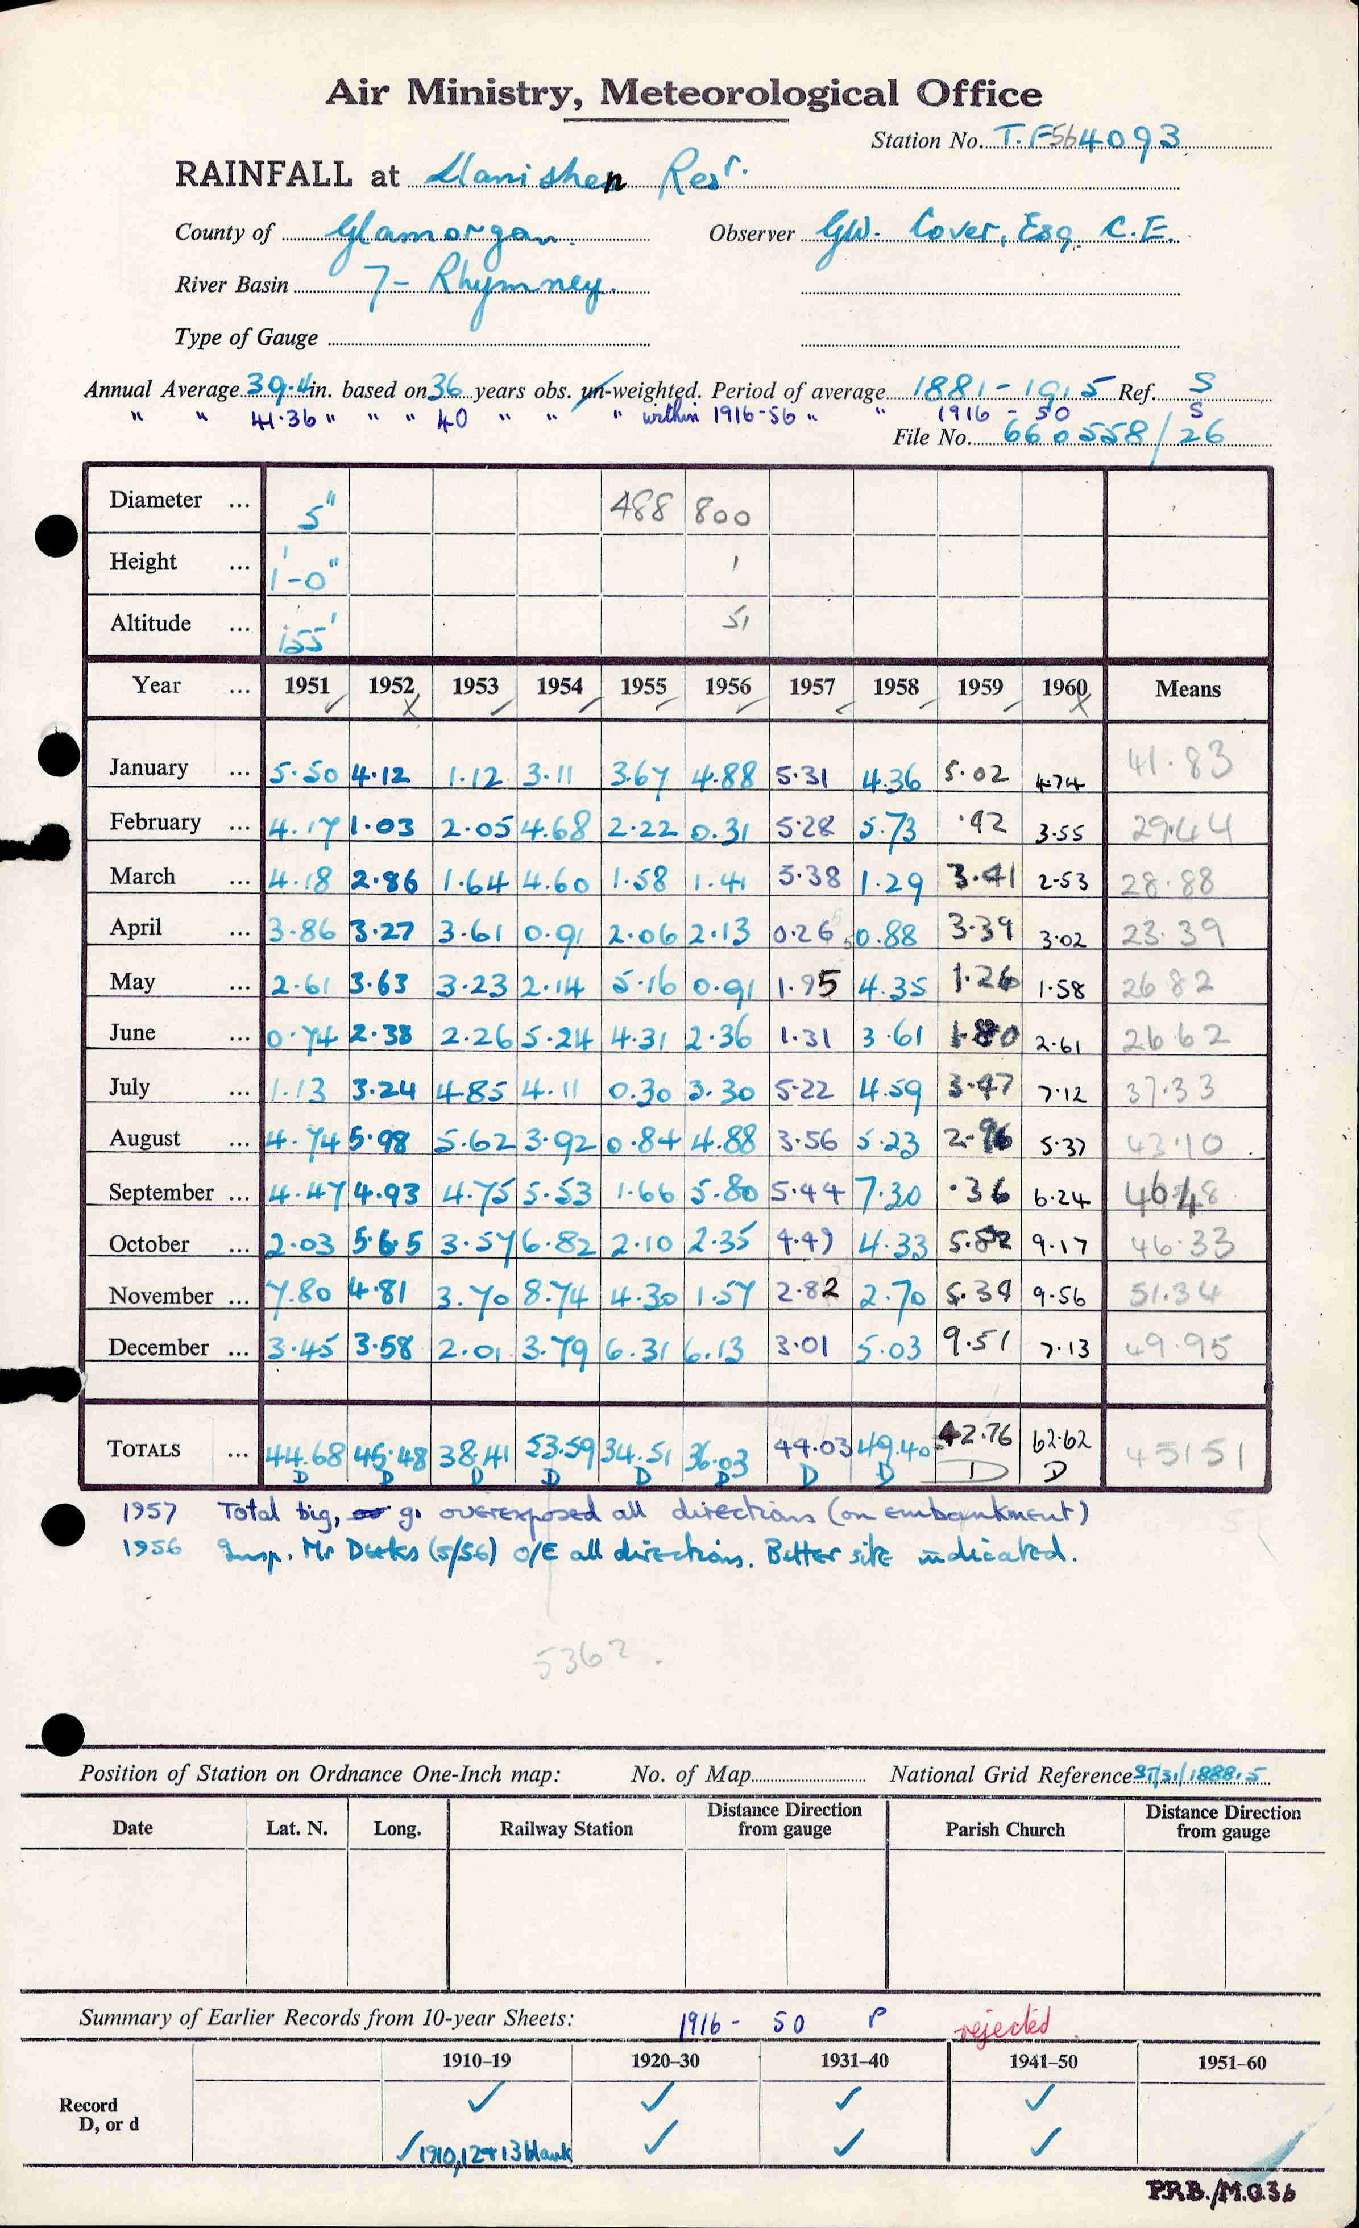 Air Ministry, Meteorological Office
Station No. T.F564093
RAINFALL at Llanishen Resr.
County of Glamorgan. Observer G.W. Cover, Esq. C.E.
River Basin 7 - Rhymney.
Type of Gauge
Annual Average 39.4 in. based on 36 years obs. un-weighted. Period of average 1881 - 1915 Ref. S
" " 41.36 " " " 40 " " " within 1916-56 " " 1916 - 50 S
File No. 660558/26
Diameter ... 5" 488 800
Height ... 1'-0" 1
Altitude ... 155' 51
Year ... 1951 1952 1953 1954 1955 1956 1957 1958 1959 1960 Means
January ... 5.50 4.12 1.12 3.11 3.67 4.88 5.31 4.36 5.02 4.74 41.83
February ... 4.17 1.03 2.05 4.68 2.22 0.31 5.28 5.73 .42 3.55 29.44
March ... 4.18 2.86 1.64 4.60 1.58 1.41 5.38 1.29 3.41 2.53 28.88
April ... 3.86 3.27 3.61 0.91 2.06 2.13 0.26 0.88 3.39 3.02 23.39
May ... 2.61 3.63 3.23 2.14 5.16 0.91 1.95 4.35 1.26 1.58 26.82
June ... 0.74 2.38 2.26 5.24 4.31 2.36 1.31 3.61 1.80 2.61 26.62
July ... 1.13 3.24 4.85 4.11 0.30 3.30 5.22 4.59 3.47 7.12 37.33
August ... 4.74 5.98 5.62 3.92 0.84 4.88 3.56 5.23 2.96 5.37 43.10
September ... 4.47 4.93 4.75 5.53 1.66 5.80 5.44 7.30 .36 6.24 46.48
October ... 2.03 5.65 3.57 6.82 2.10 2.35 4.49 4.33 5.82 9.17 46.33
November ... 7.80 4.81 3.70 8.74 4.30 1.57 2.82 2.70 5.34 9.56 51.34
December ... 3.45 3.58 2.01 3.79 6.31 6.13 3.01 5.03 9.51 7.13 49.95
TOTALS ... 44.68 45.48 38.41 53.59 34.51 36.03 44.03 49.40 42.76 62.62 45151
D D D D D D D D D D
1957 Total big, g. overexposed all directions (on embankment)
1956 Insp. Mr (5/56) O/E all directions. Better site indicated.
5362.
Position of Station on Ordnance One-Inch map: No. of Map National Grid Reference 31/ 31/1888.5
Date Lat. N. Long. Railway Station Distance Direction from gauge Parish Church Distance Direction from gauge
Summary of Earlier Records from 10-year Sheets: 1916 - 50 P rejected
1910–19 1920–30 1931–40 1941–50 1951–60
Record ✓ ✓ ✓ ✓
D, or d ✓ 1910, 12 & 13 blank ✓ ✓ ✓
P.R.B./M.O.36